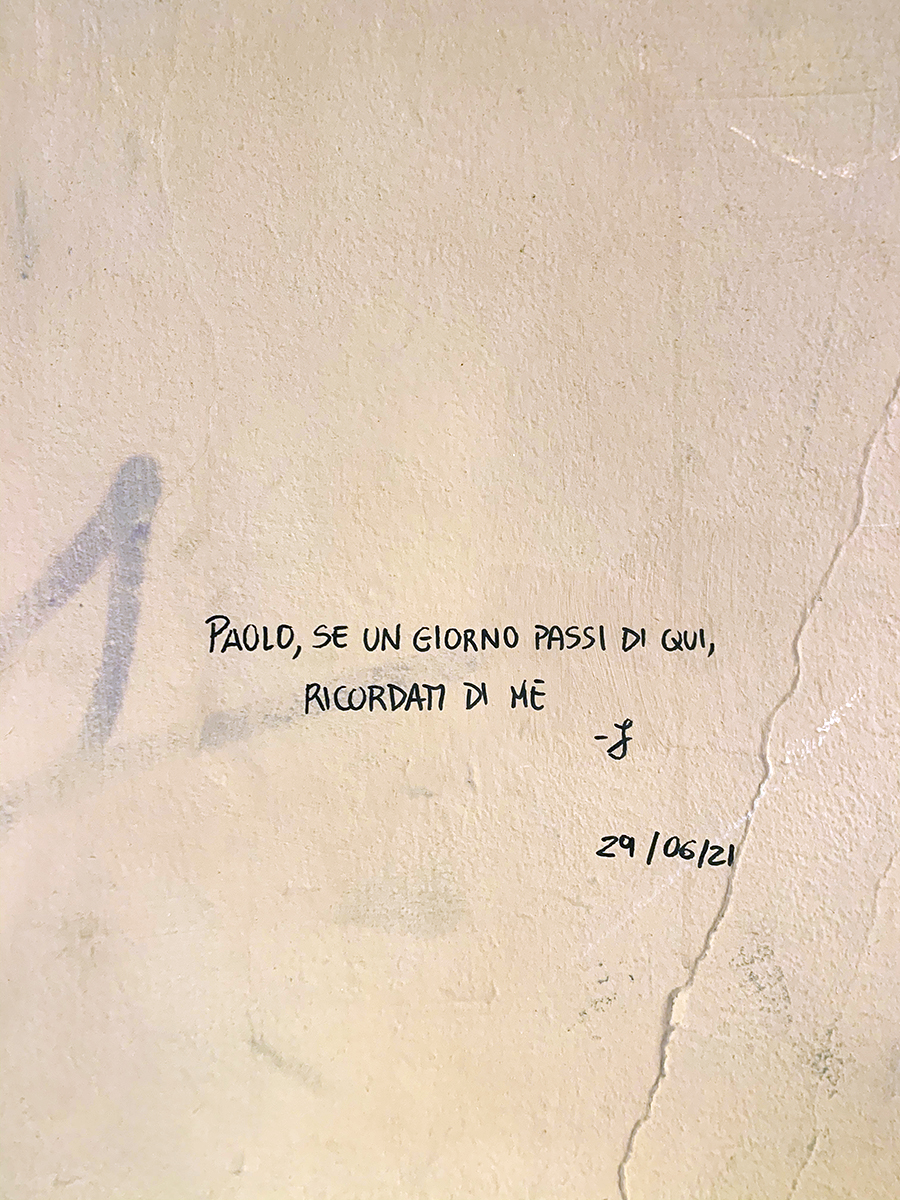 PAOLO, SE UN GIORNO PASSI DI QUI,
RICORDATI DI ME
-J
29/06/21